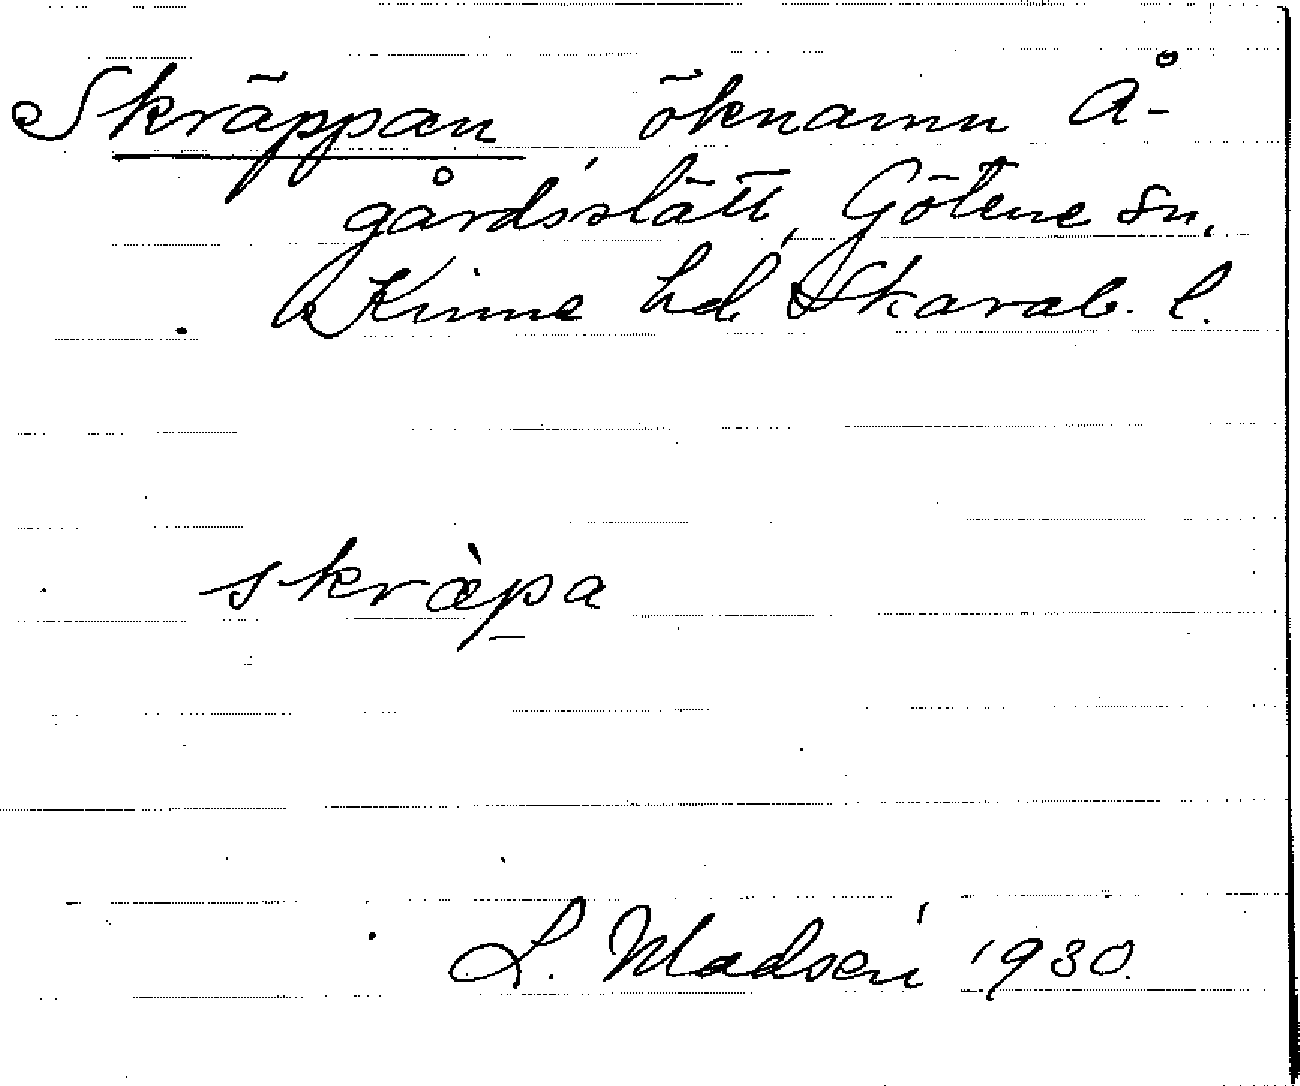 Skräppan öknamn Å-
gårdsslätt, Götene sn,
Kinne hd Skarab. l.
skræ̀pa
L. Madsén 1930.